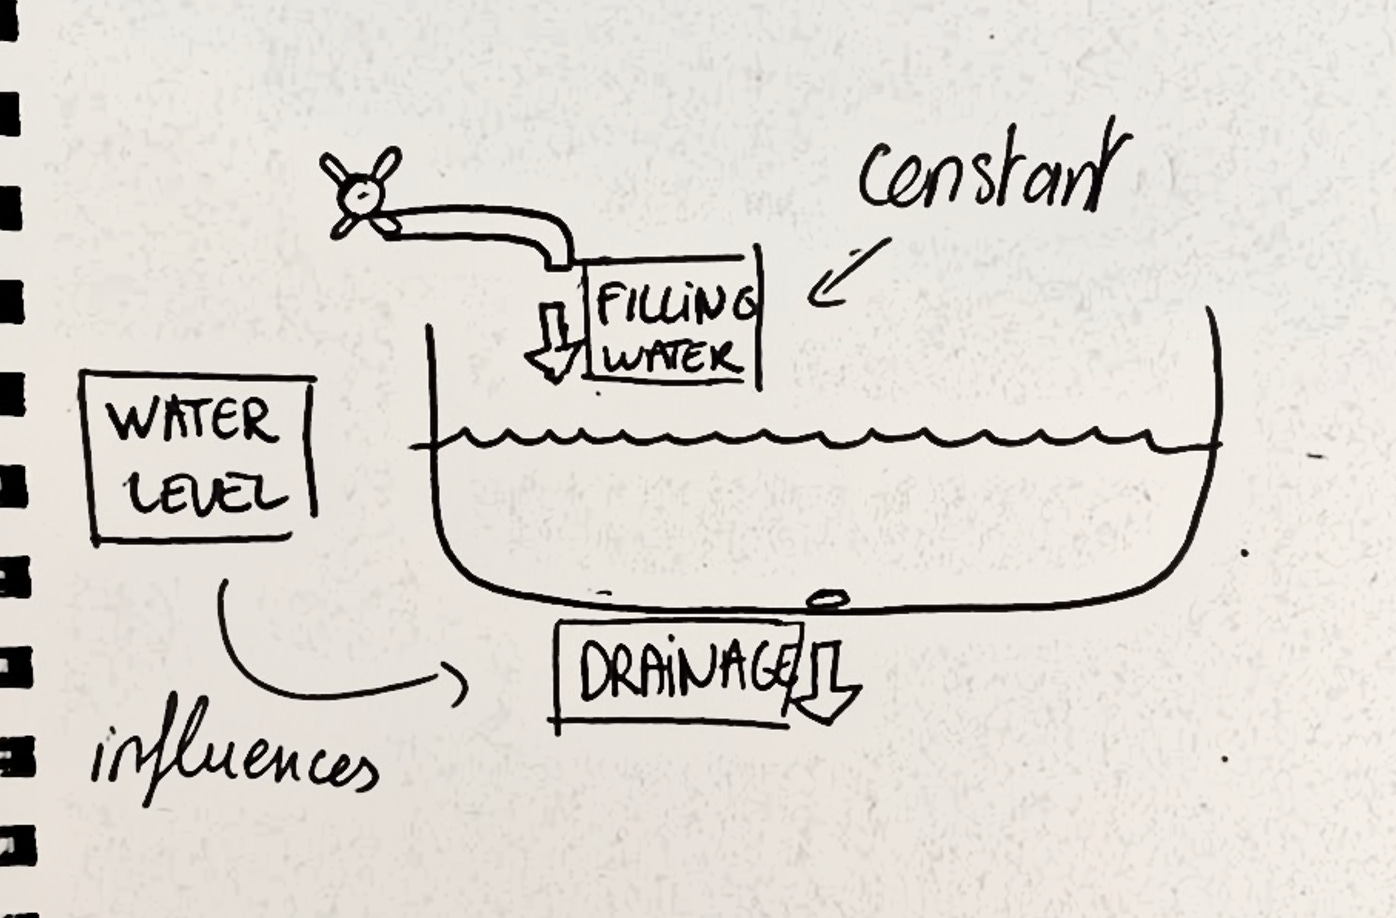 constant
FILLING
WATER
WATER
LEVEL
DRAINAGE
influences